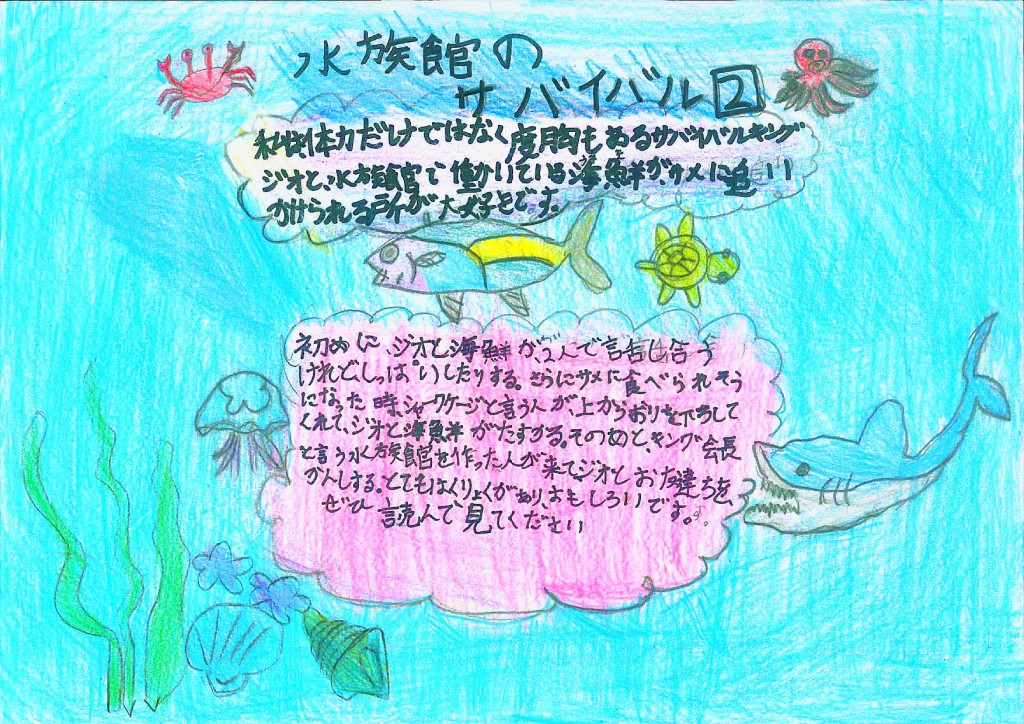 水族館の
サバイバル2
私は体力だけではなく度胸もあるサバイバルキング
ジオと、水族館で働かいている海鮮が、サメに追い
かけられる所が大好きです。
初めに、ジオと海鮮が、2人で言舌し合う
けれど、しっぱいしたりする。さらにサメに食べられそう
になった時、シャークケージと言う人が、上からおりを下ろして
くれて、ジオと海鮮がたすかる。そのあと、キング会長
と言う水族館を作った人が来てジオとお友達ちを、
かんしする。とてもはくりょくがあり、おもしろいです。
ぜひ読んで見てください